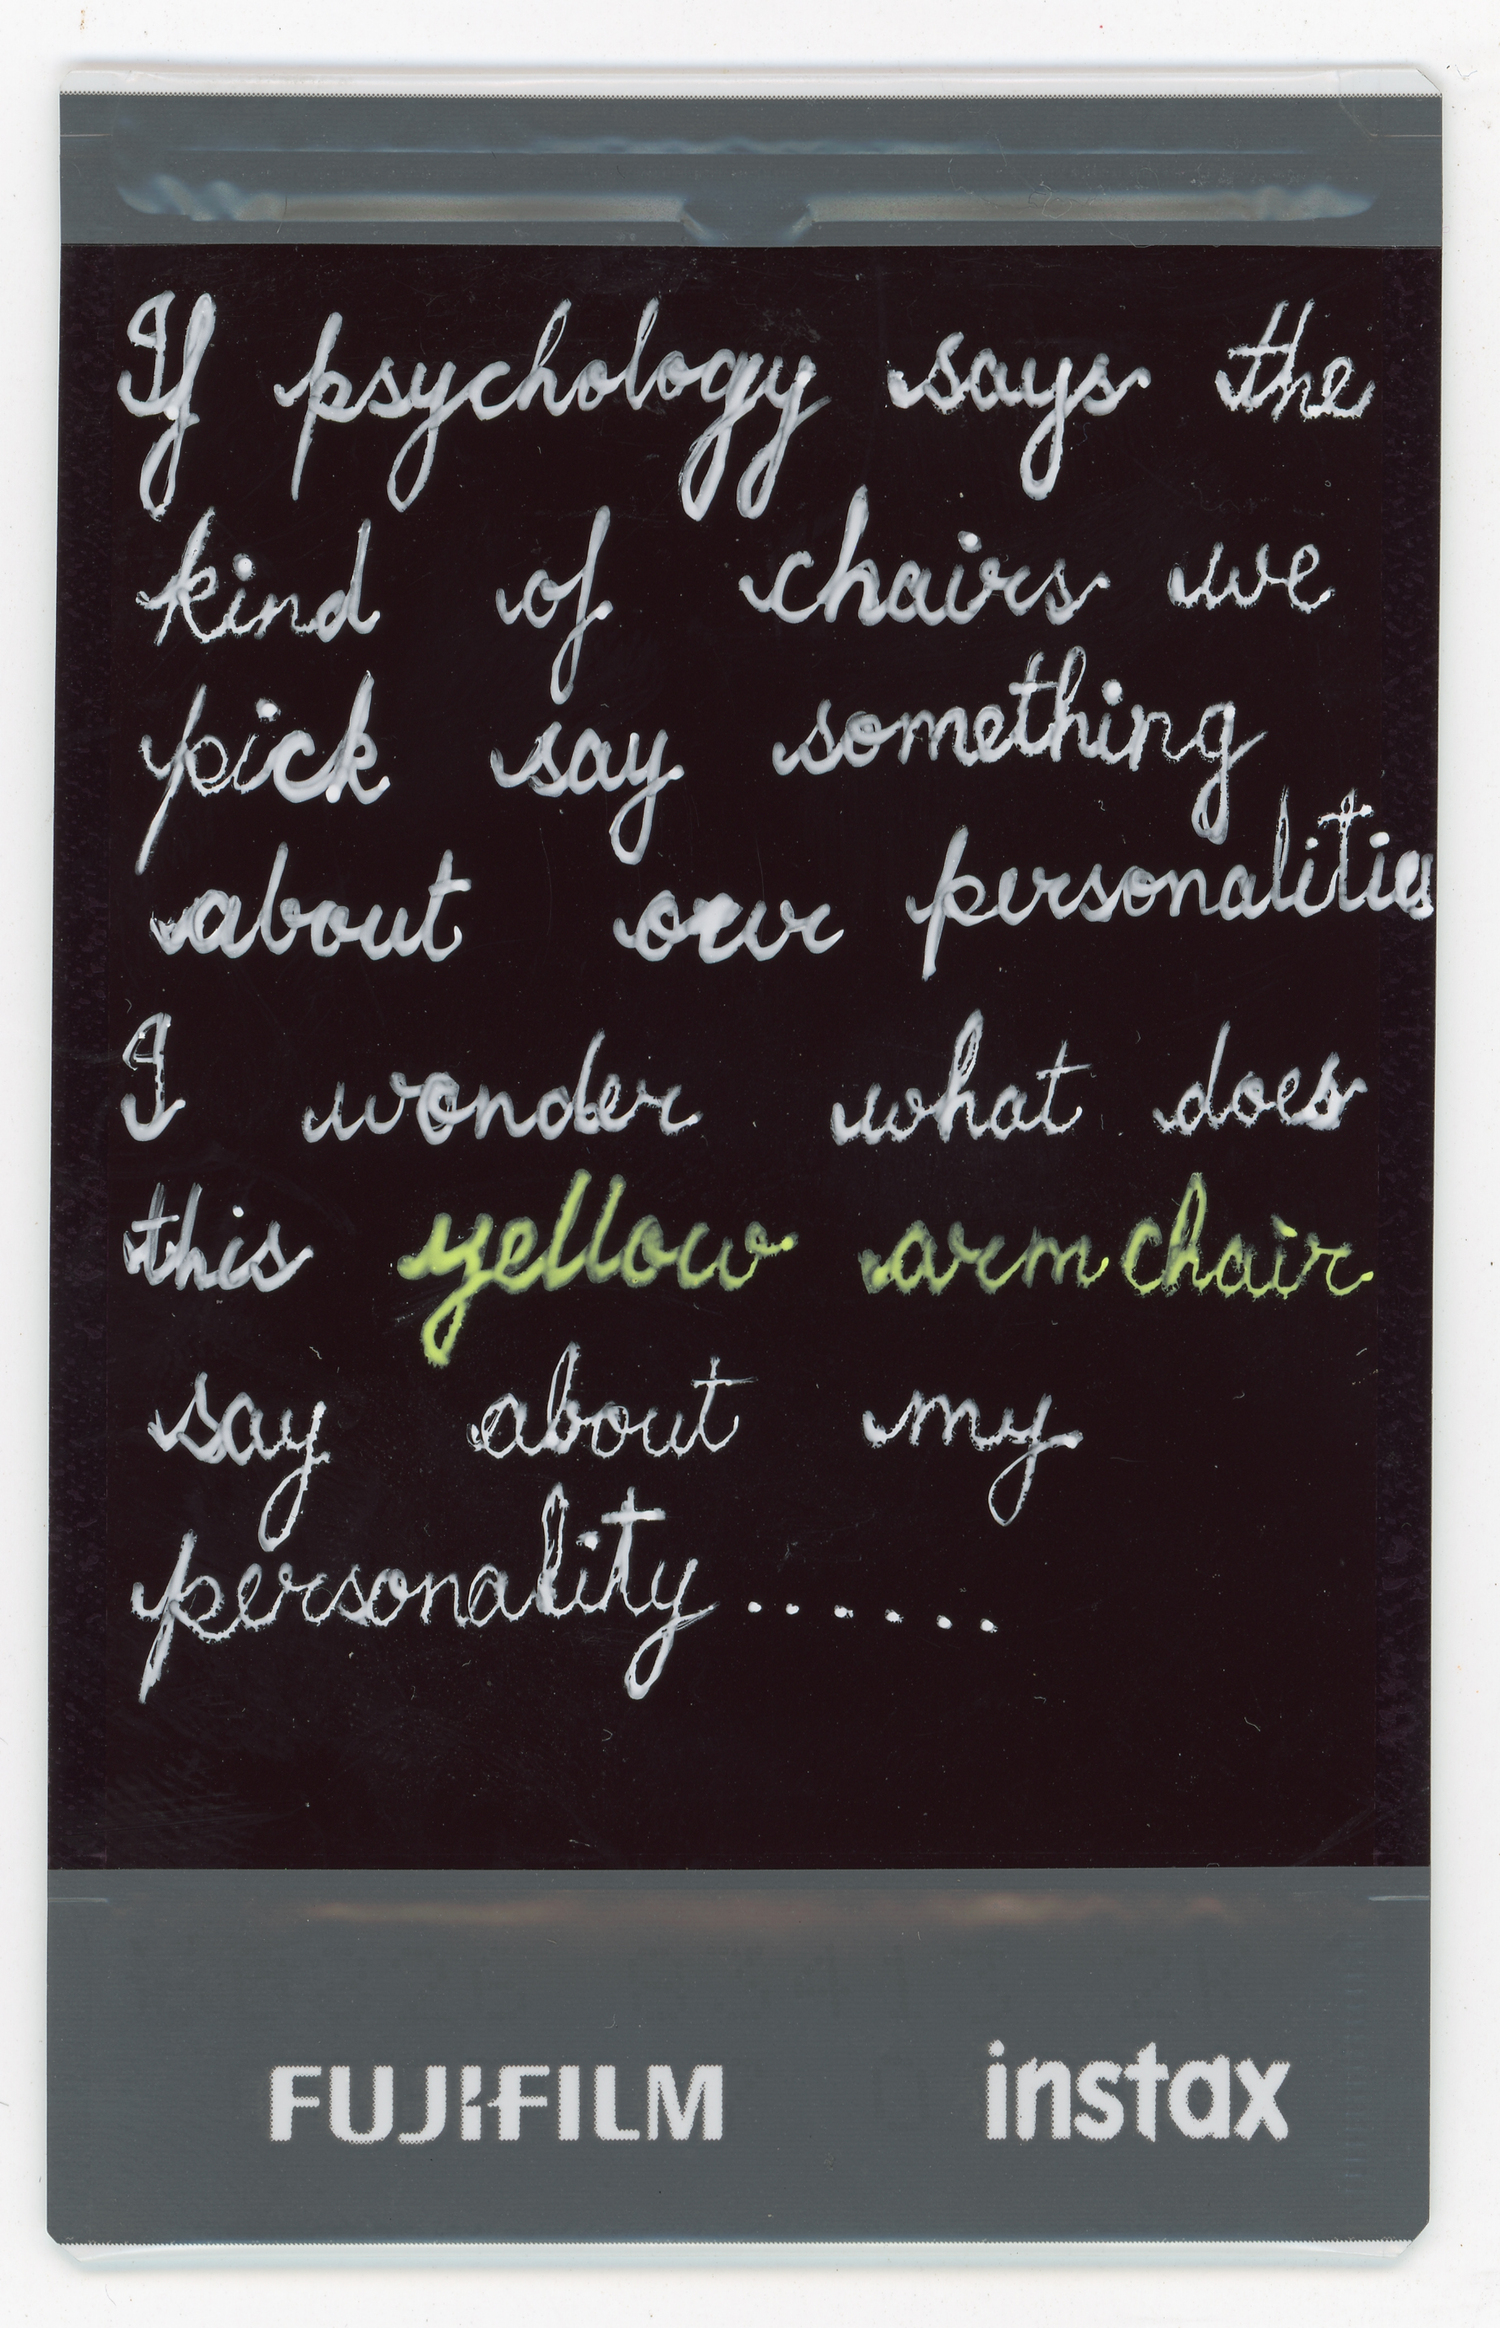 If psychology says the
kind of chairs we
pick say something
about our personalities
I wonder what does
this yellow armchair
say about my
personality......
FUJIFILM instax